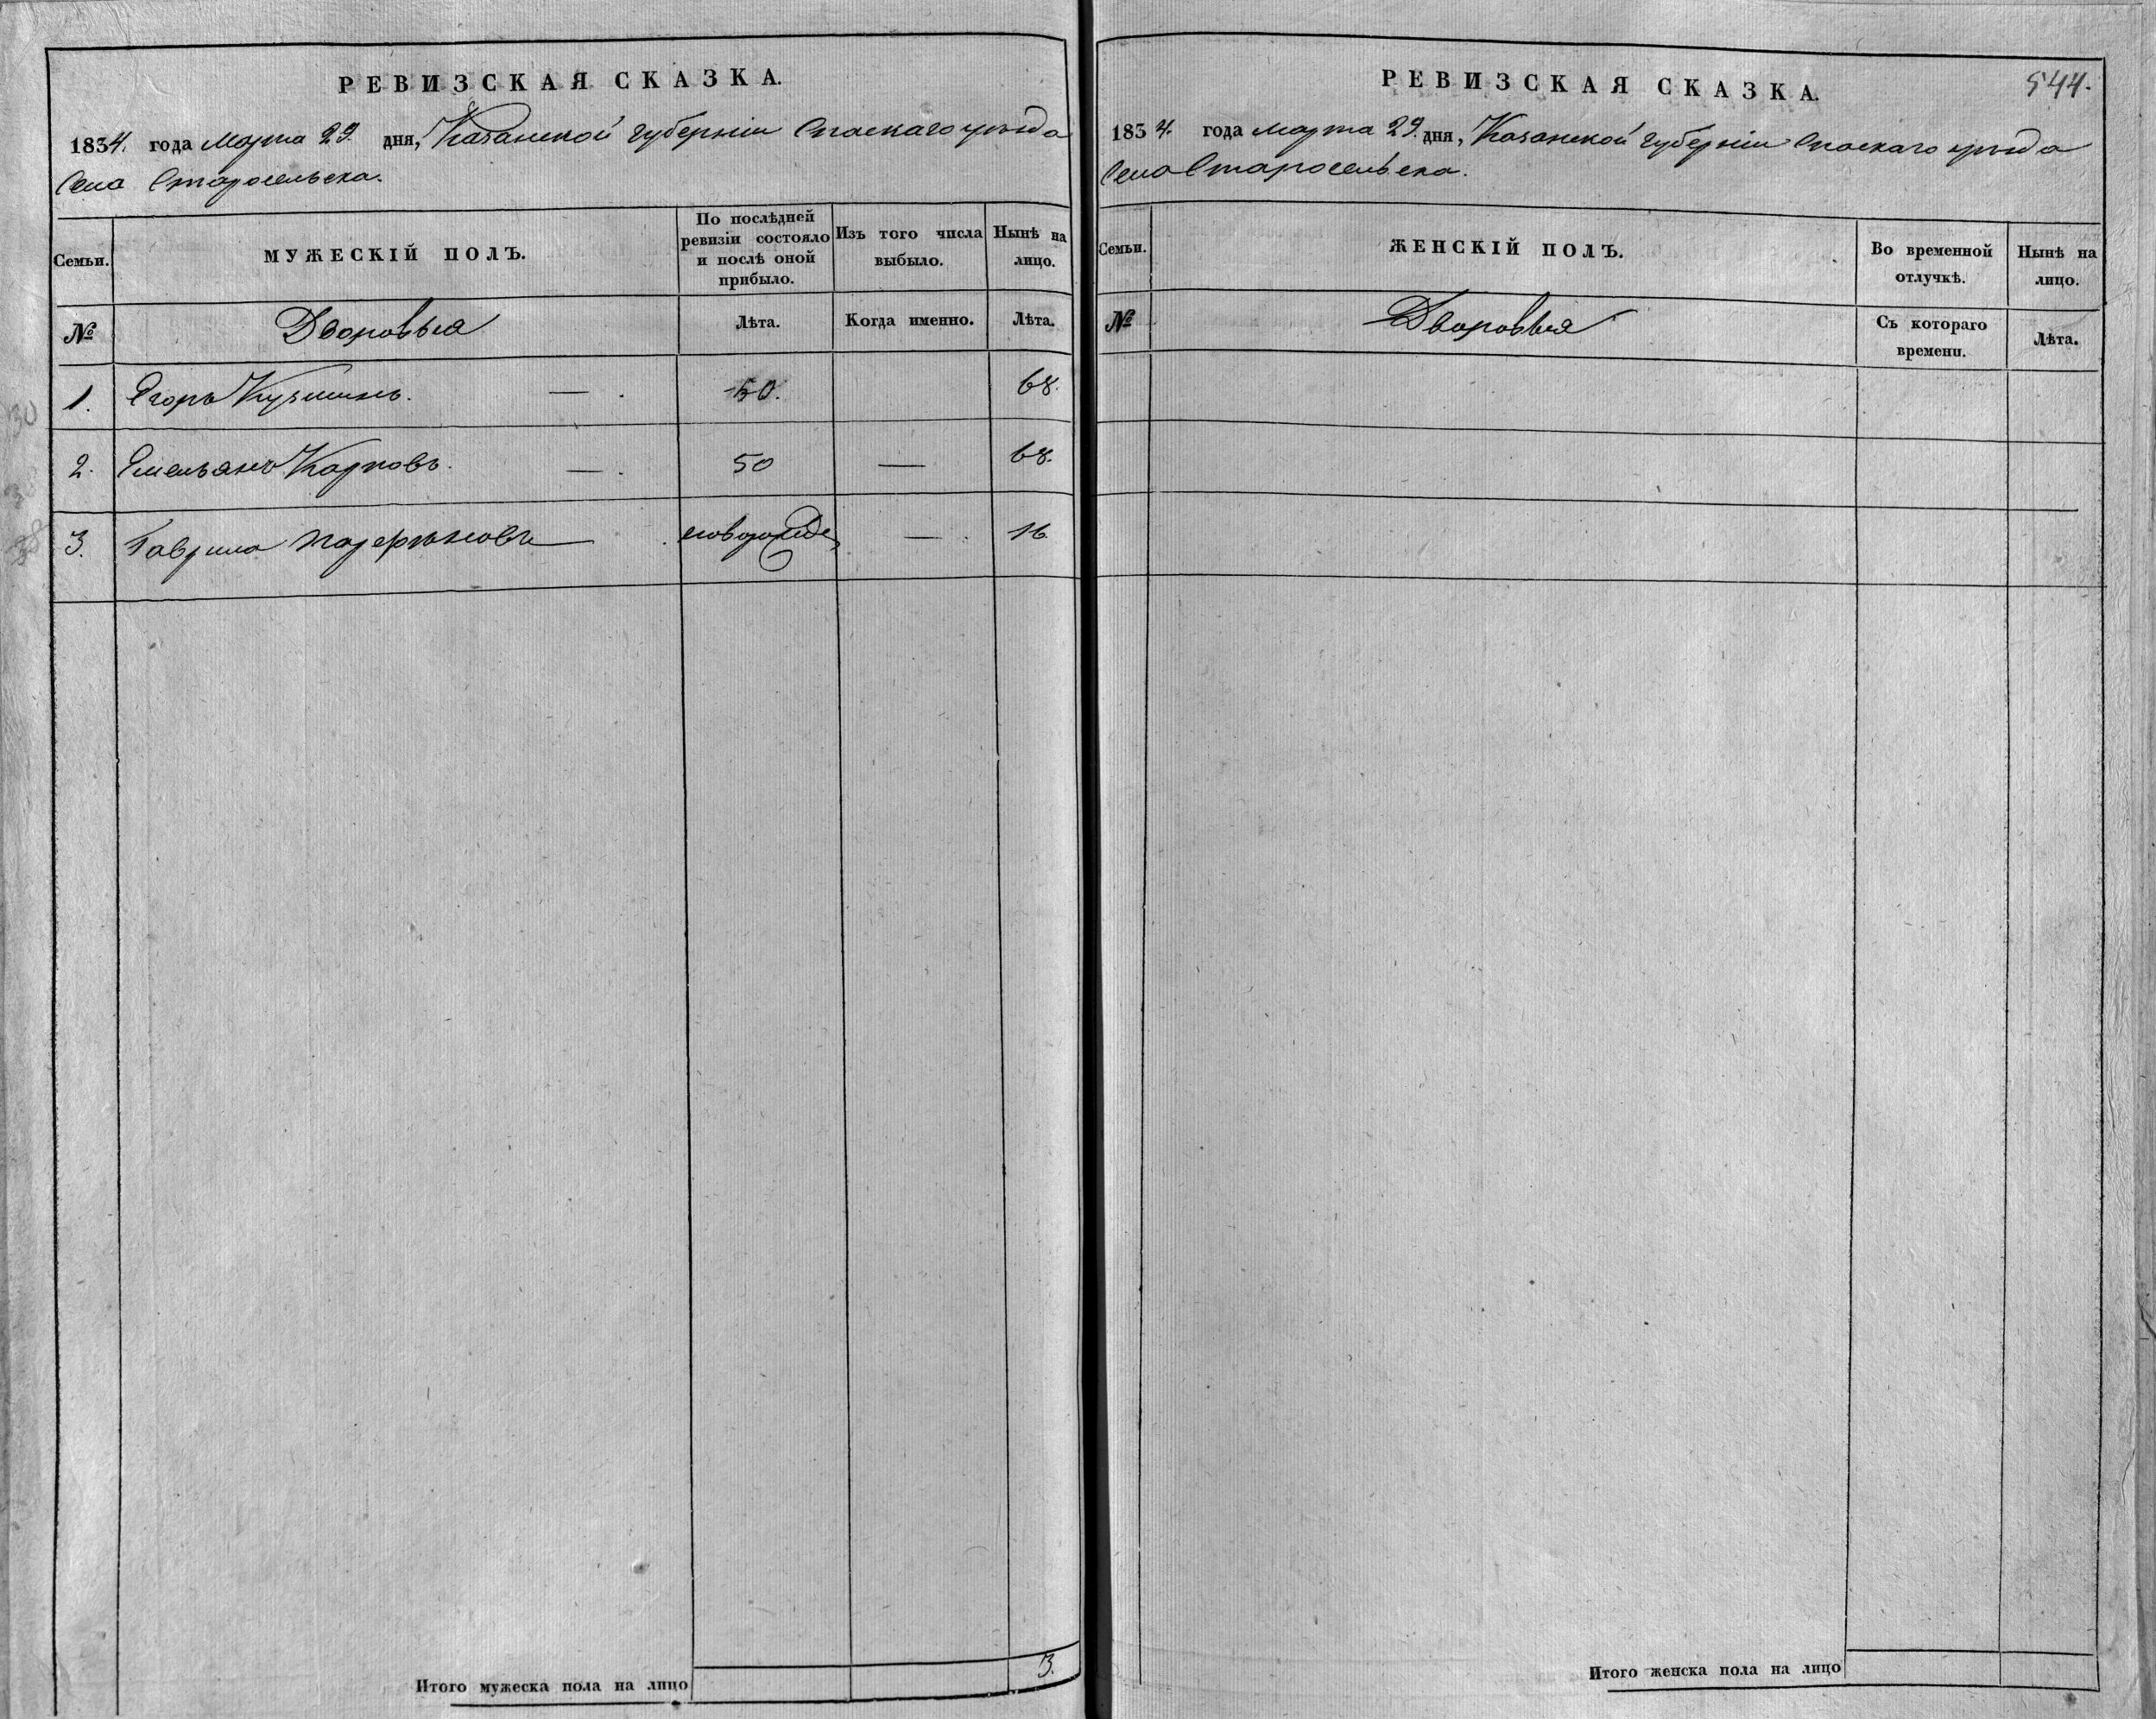 РЕВИЗСКАЯ СКАЗКА.
1834. года Марта 29. дня, Казанской губерніи Спаскаго уѣзда
Села Старосельска.
Семьи.
МУЖЕСКІЙ ПОЛЪ.
По послѣдней
ревизіи состояло
и послѣ оной
прибыло.
Изъ того числа
выбыло.
Нынѣ на
лицо.
№
Дворовыя
Лѣта.
Когда именно.
Лѣта.
1. Егоръ Кузминъ. — . 50. 68.
2. Емельянъ Карповъ. — . 50 — 68.
3. Гаврила новорожде — . 16
Итого мужеска пола на лицо
3.
544.
РЕВИЗСКАЯ СКАЗКА.
1834. года Марта 29. дня, Казанской Губерніи Спаскаго уѣзда
Села Старосельска.
Семьи.
ЖЕНСКІЙ ПОЛЪ.
Во временной
отлучкѣ.
Нынѣ на
лицо.
№
Дворовыя
Съ котораго
времени.
Лѣта.
Итого женска пола на лицо